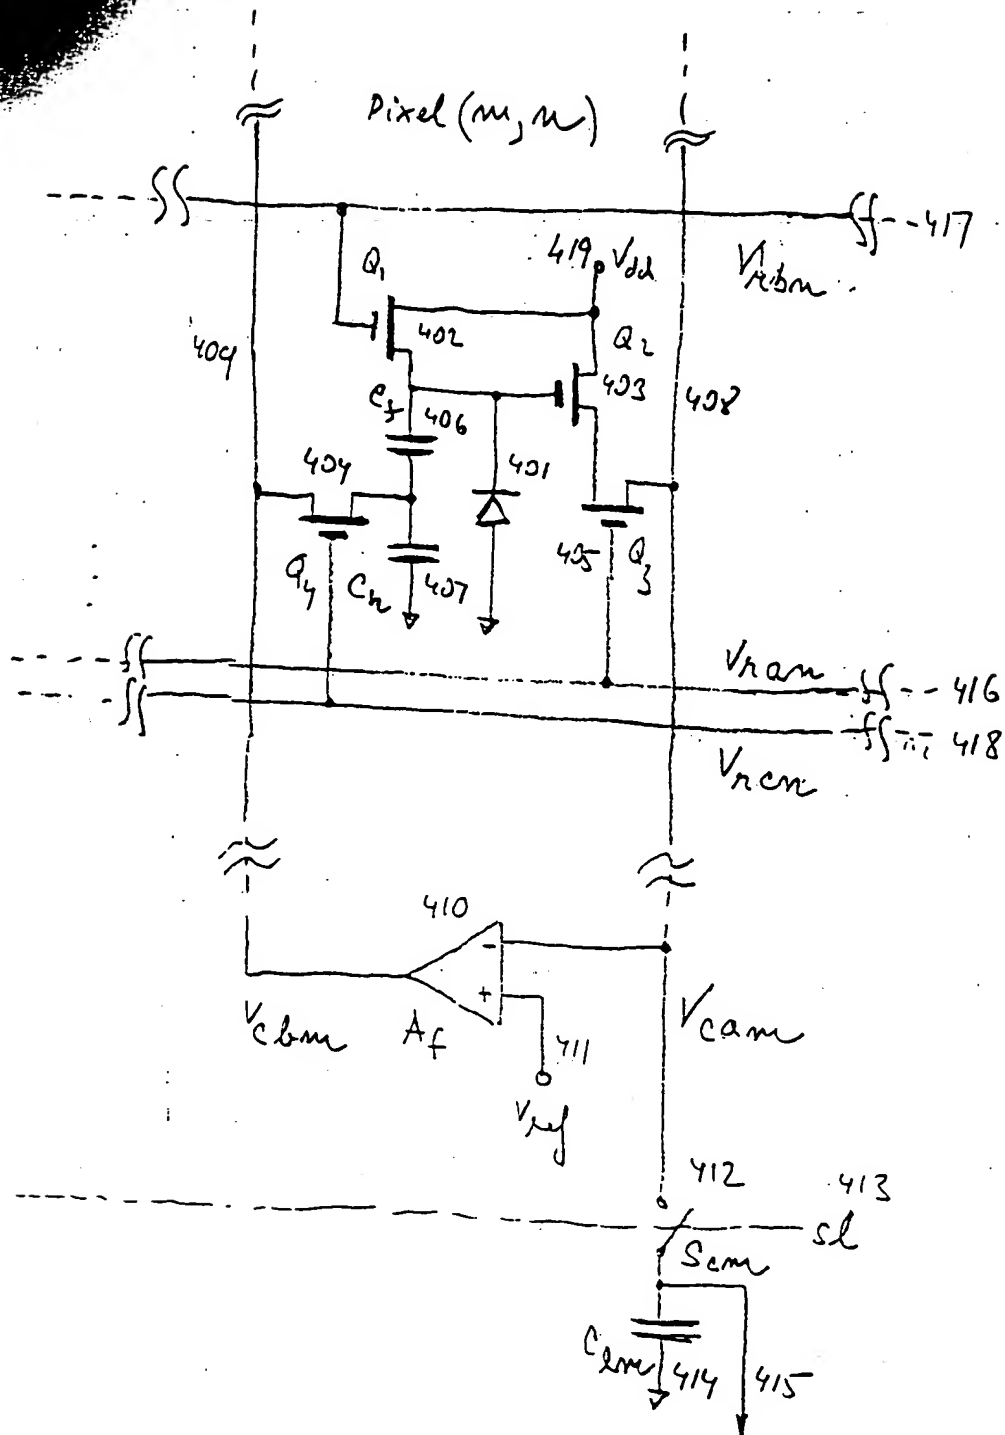 Pixel (m,n)
417
Vrbn
419 Vdd
Q1
402
Q2
403
409
408
Cf 406
404
401
405
Q3
Q4
Cr 407
Vran
416
418
Vrcn
410
Vcbm
Af
411
Vref
Vcam
412
413
sl
Scm
414
415